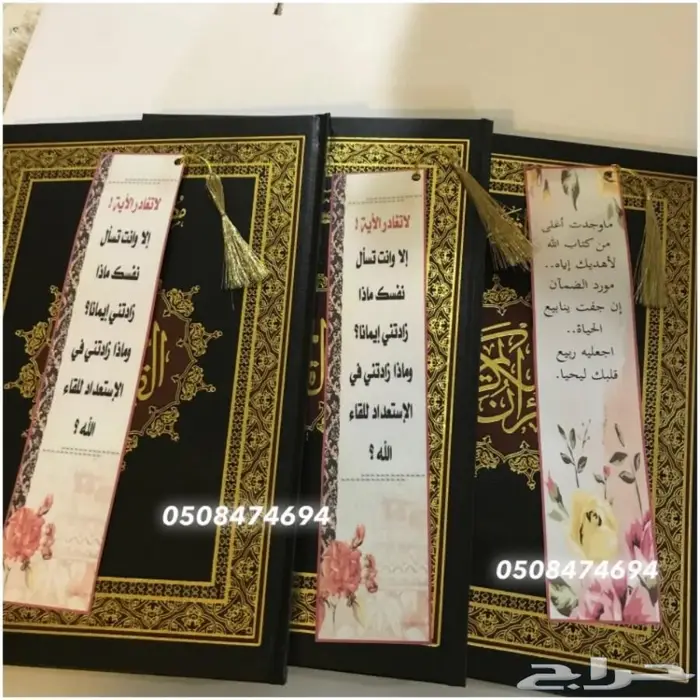 لا تغادر الآية !
إلا وانت تسأل
نفسك ماذا
زادتني إيمانا؟
وماذا زادتني في
الإستعداد للقاء
الله ؟
0508474694
لا تغادر الآية !
إلا وانت تسأل
نفسك ماذا
زادتني إيمانا؟
وماذا زادتني في
الإستعداد للقاء
الله ؟
0508474694
ماوجدت أغلى
من كتاب الله
لأهديك إياه..
مورد الضمآن
إن جفت ينابيع
الحياة..
اجعليه ربيع
قلبك ليحيا.
0508474694
حراج